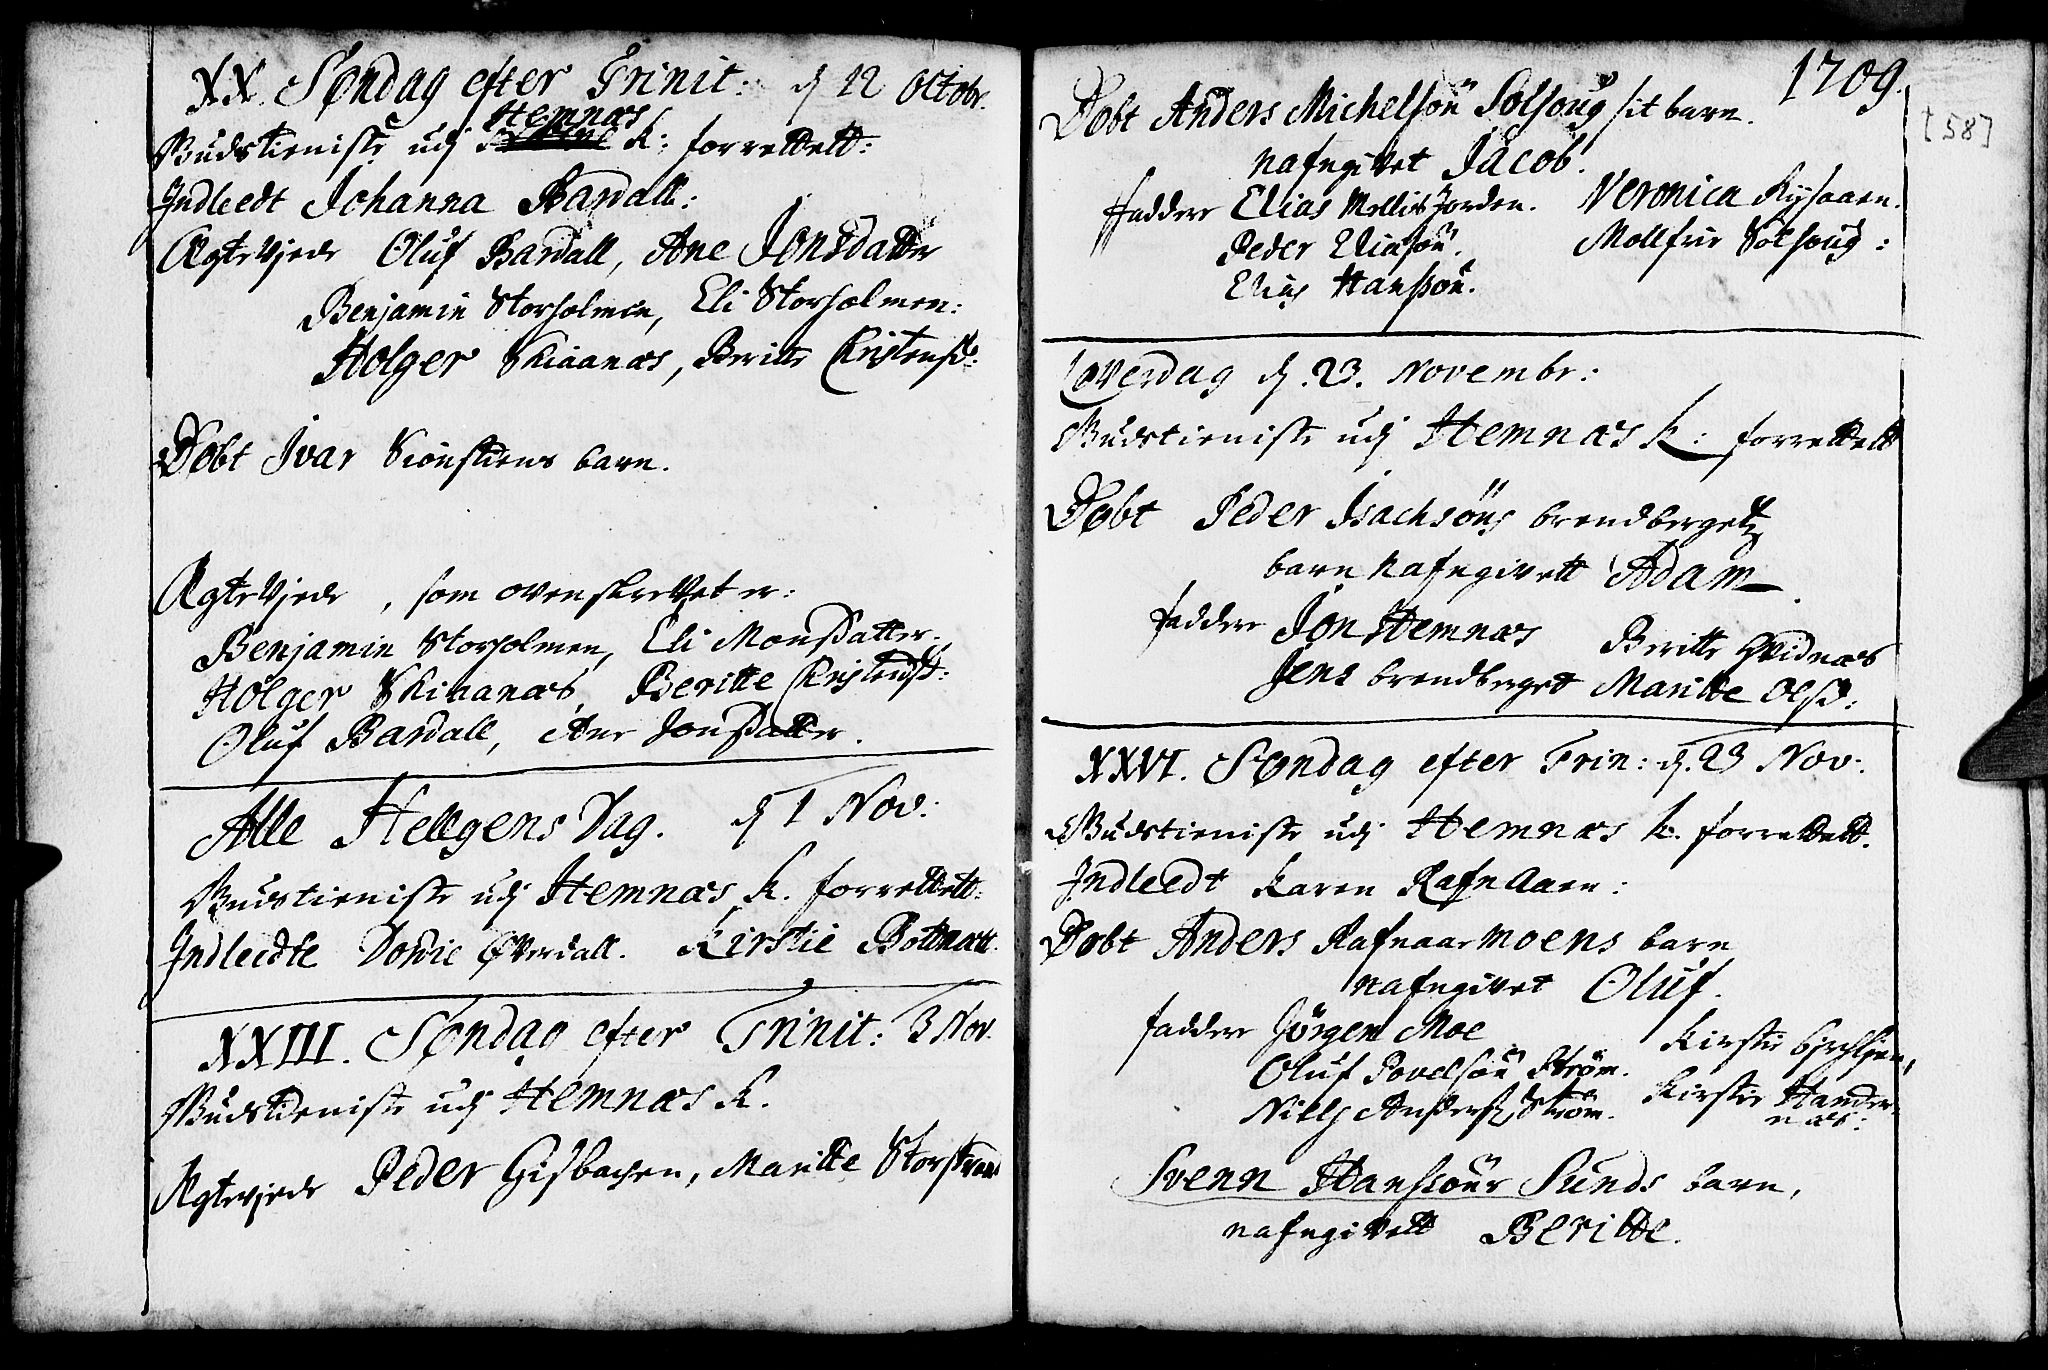 XX. Søndag efter Trinit: d 12 Octobr.
Hemnæs
Gudstieniste udj K: forrettett:
Indleedt Johanna Bardall:
Ægtevjede Oluf Bardall, Ane Jonsdatter
Benjamin Storholmen, Eli Storholmen:
Holger Skiaanæs, Beritte Christensd:
Døbt Ivar Siønstiens barn.
Ægtevjede, som ovenskrevet er:
Benjamin Storholmen, Eli Monsdatter.
Holger Skiaanæs, Beritte Christensd:
Oluf Bardall, Ane Jonsdatter.
Alle Helgens Dag. d 1 Nov:
Gudstieniste udj Hemnæs K. forrettett:
Indleedte Dordie Øverdall. Kirstie Botnætt.
XXIII. Søndag efter Trinit: 3 Nov.
Gudstieniste udj Hemnæs K.
Ægtevjede Peder Gisbachen, Maritte Storstrand
1709.
[58]
Døbt Anders Michelsøn Solsoug sit barn.
nafngivet Jacob.
faddere Elias Mellisjorden. Veronica Rysaaen.
Peder Eliasøn. Mollfrie Solsoug:
Elias Hanssøn.
Løverdag d. 23. Novembr:
Gudstieniste udj Hemnæs K: forrettett
Døbt Peder Isachsøns brendbergetz
barn nafngivett Adam.
faddere Jon Hemnæs Beritte Qvidnæs
Jens brendberget Maritte Olsd:
XXVI. Søndag efter Trin: d. 23 Nov:
Gudstieniste udj Hemnæs k. forrettett.
Indleedt Karen Rafnaaen:
Døbt Anders Rafnaamoens barn
nafngivet Oluf.
faddere Jørgen Moe Kirstie
Oluf Povelsøn Strøm.
Niels Andersz Strøm. Kirstie Hander-
næs:
Svenn Hanssøns Sunds barn,
nafngivett Beritte.